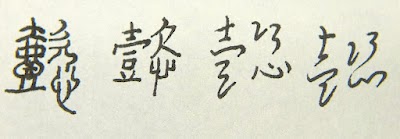 懿懿懿懿